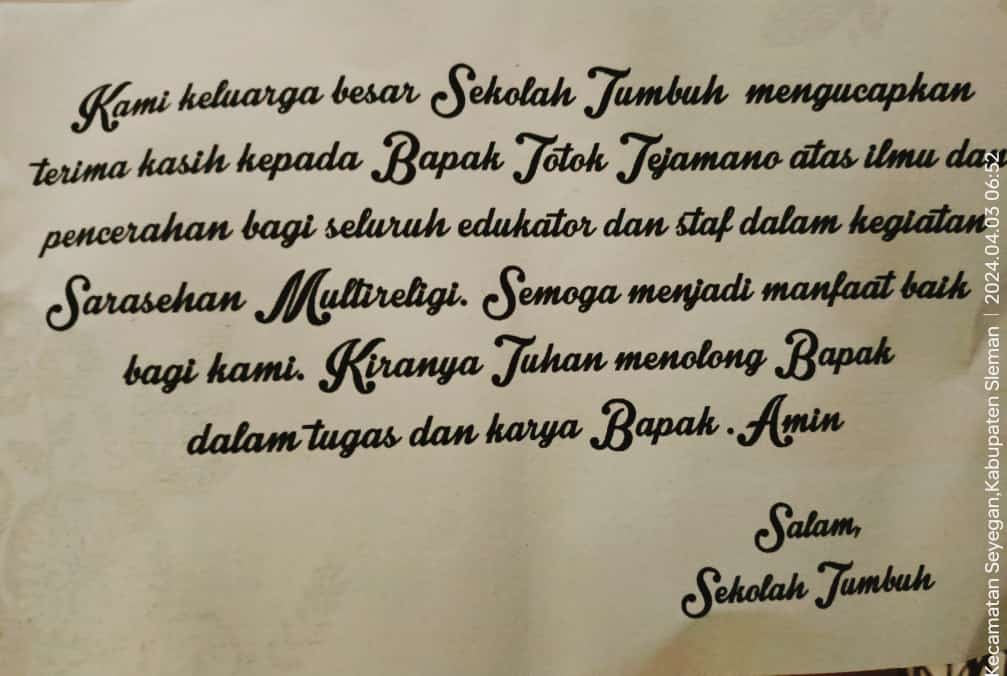 Kami keluarga besar Sekolah Tumbuh mengucapkan
terima kasih kepada Bapak Totok Tejamano atas ilmu dan
pencerahan bagi seluruh edukator dan staf dalam kegiatan
Sarasehan Multireligi. Semoga menjadi manfaat baik
bagi kami. Kiranya Tuhan menolong Bapak
dalam tugas dan karya Bapak . Amin
Salam,
Sekolah Tumbuh
Kecamatan Seyegan,Kabupaten Sleman | 2024.04.03 06:52